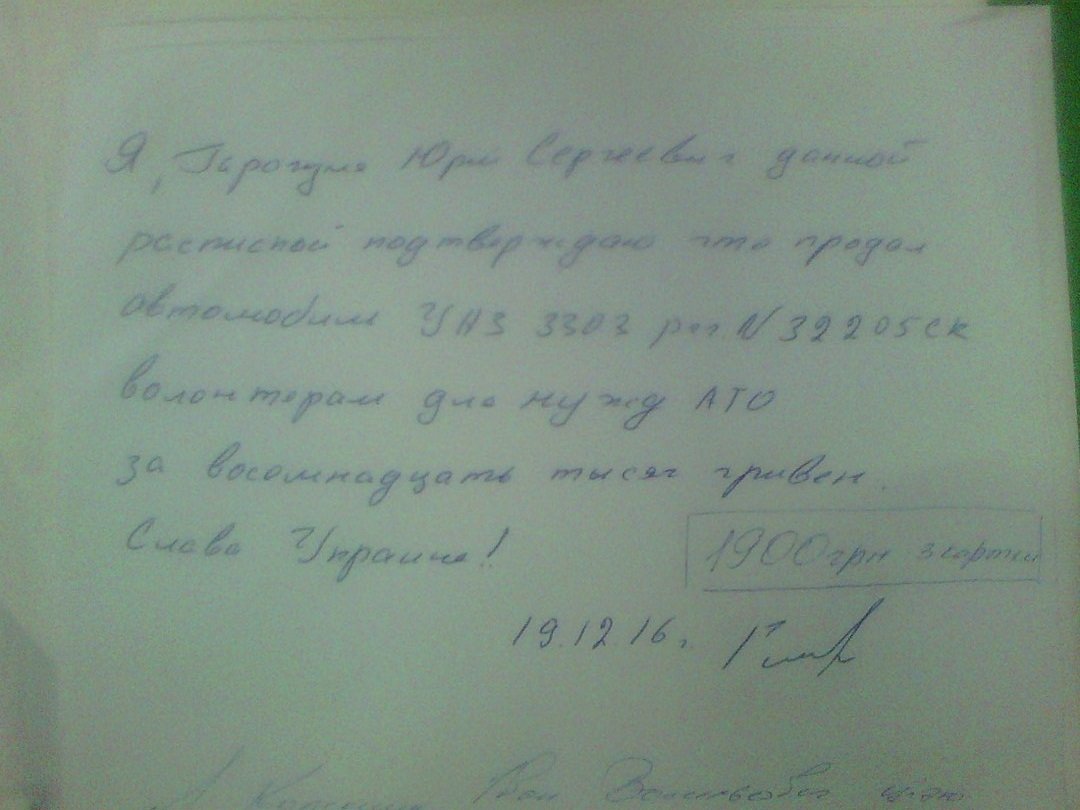 Я, Юрий Сергеевич данной
распиской подтверждаю что продал
автомобиль УАЗ 3303 рег. N 32205СК
волонтерам для нужд АТО
за восомнадцать тысяч гривен.
Слава Украине!
1900грн з картки
19.12.16г.